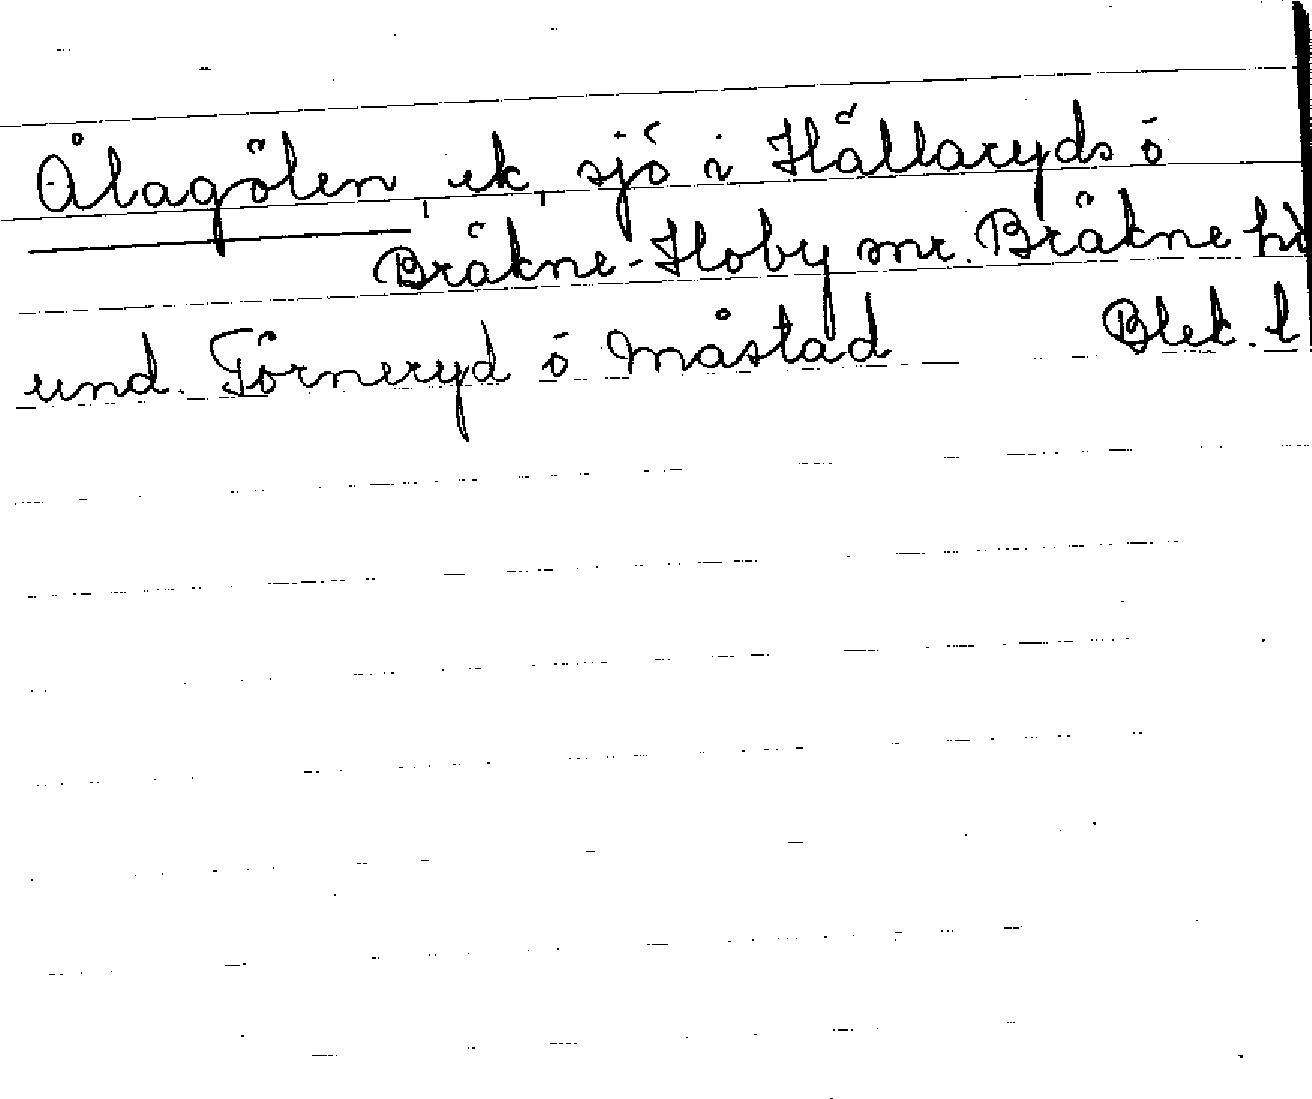 Ålagölen, ek, sjö i Hällaryds o
Bräkne-Hoby snr. Bräkne hd
und. Törneryd o Måstad Blek. l